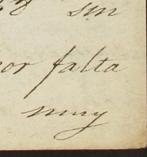 sin
or falta
muy